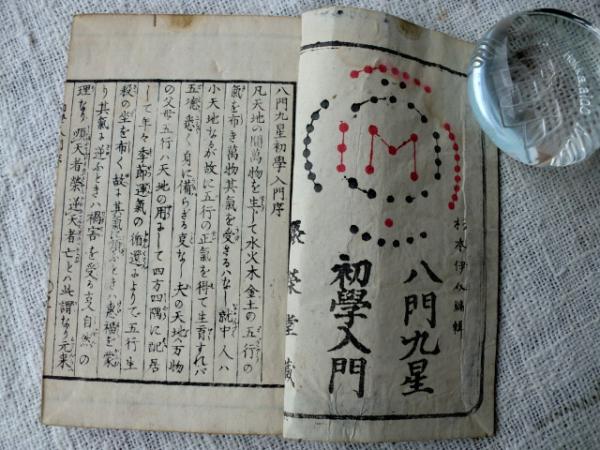 杉本伊公編輯
八門九星
初學入門
榮堂藏
八門九星初學入門序
凡天地の間萬物を生して水火木金土の五行の
氣を布き萬物其氣を受さるハなし就中人ハ
小天地なるが故に五行の正氣を得て生育すれバ
五德悉く身に備らざる事なし夫の天地ハ万物
の父母五行ハ天地の用にして四方四隅に配居
して年々季節運氣の循運ふよりて五行生
殺の坐を布く故に其氣に順ふときハ裏福を蒙
り其氣に逆ふときハ禍害を受る事自然の
理なり順天者榮逆天者亡とハ此謂なり元來